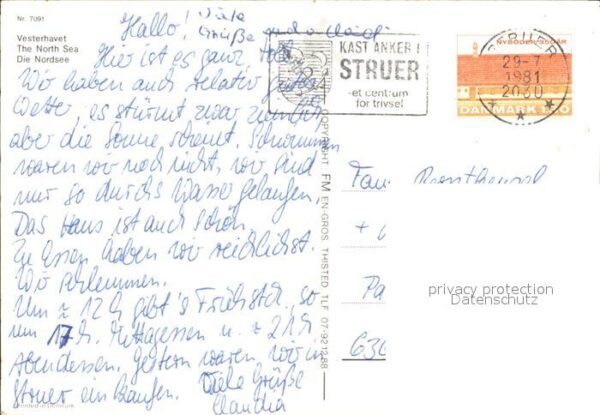 Nr. 7091
Vesterhavet
The North Sea
Die Nordsee
Hallo!
Hier ist es ganz toll
Wir haben auch relativ gutes
Wetter, es stürmt zwar ziemlich
aber die Sonne scheint. Schwimmen
waren wir noch nicht, wir sind
nur so durchs Wasser gelaufen.
Das Haus ist auch schön.
Zu Essen haben wir reichlichst.
Wir schlemmen.
Um ≈ 12 h gibt's Frühstck, so
um 17 h. Mittagessen u. ≈ 21 h
Abendessen. Gestern waren wir in
Struer einkaufen. Viele Grüße
Claudia
Viele
Grüße
KAST ANKER I
STRUER
-et centrum
for trivsel
STRUER
29-7
1981
2030
NYBODER 350 ÅR
DANMARK
COPYRIGHT FM EN-GROS THISTED TLF 07-921288
Fam.
+
Pa
630
privacy protection
Datenschutz
Printed in Denmark